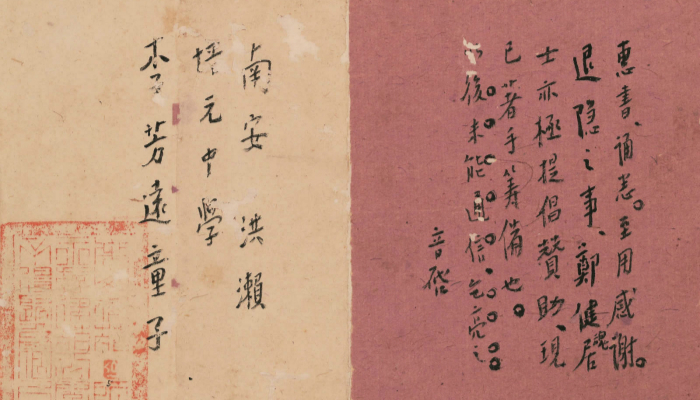 惠書、誦悉。至用感謝。
退隱之事、鄭健魂居
士亦極提倡贊助、現
已著手籌備也。
後未能通信、乞亮之。
音啓
南安 洪瀨
培元中學
李芳遠童子